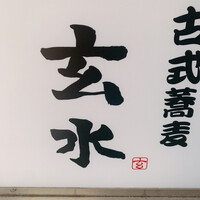 古式蕎麦
玄水
玄